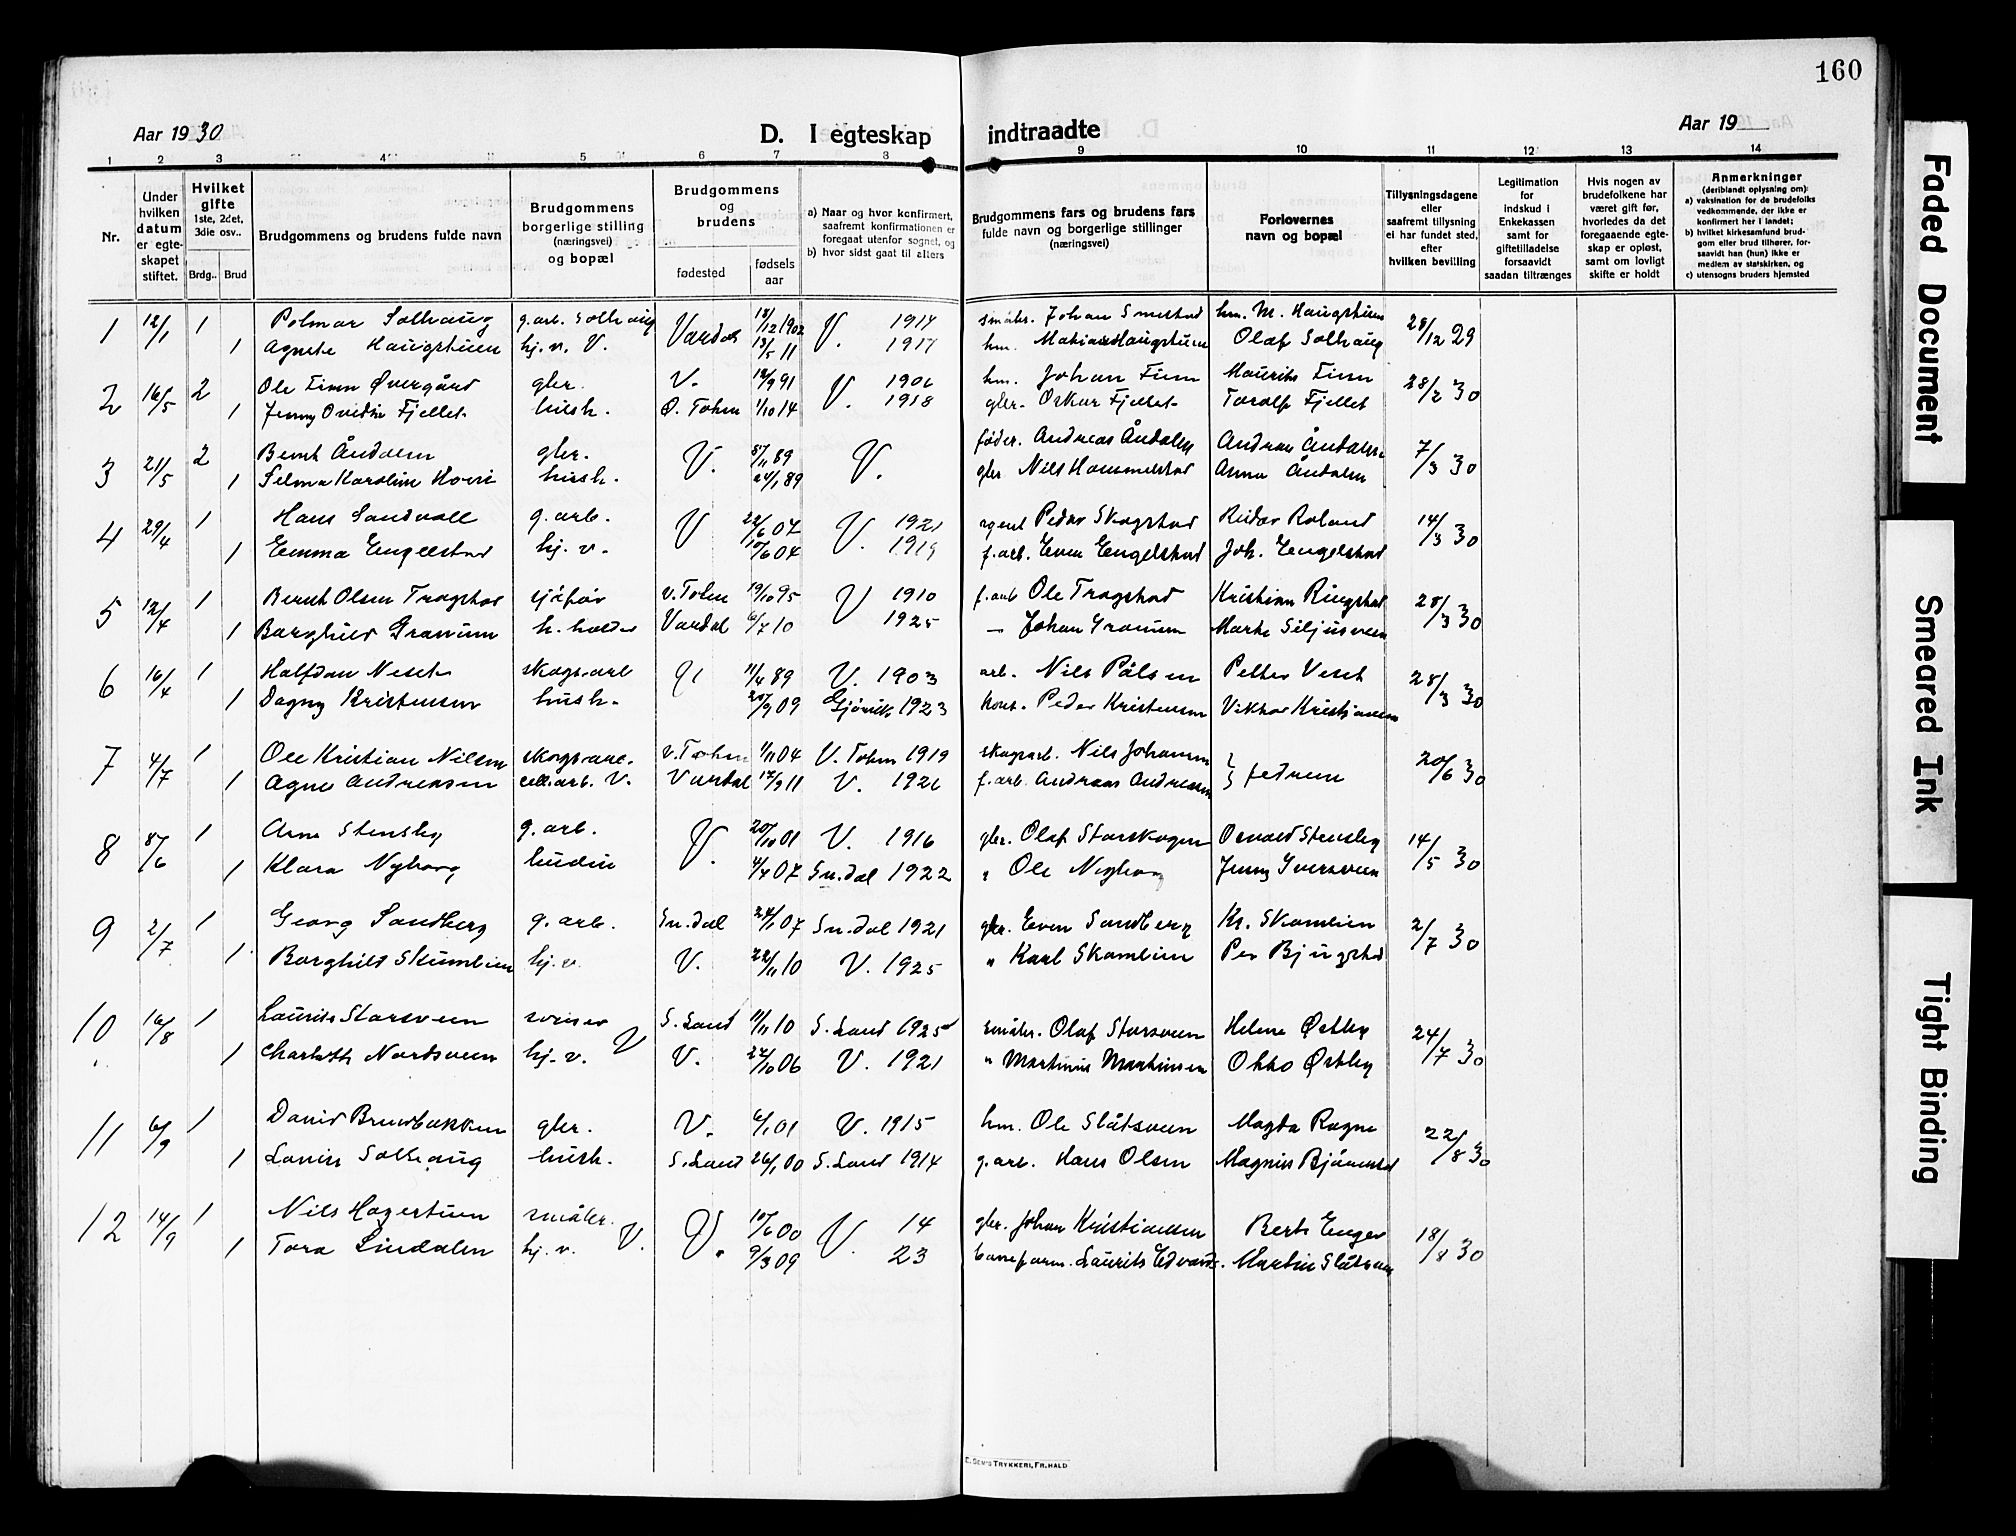 160
Aar 1930
D. I egteskap indtraadte
Aar 19
1 2 3 4 5 6 7 8 9 10 11 12 13 14
Nr.
Under hvilken datum er egteskapet stiftet.
Hvilket gifte 1ste, 2det, 3die osv..
Brdg.. Brud
Brudgommens og brudens fulde navn
Brudgommens borgerlige stilling (næringsvei) og bopæl
Brudgommens og brudens
fødested
fødsels aar
a) Naar og hvor konfirmert, saafremt konfirmationen er foregaat utenfor sognet, og
b) hvor sidst gaat til alters
Brudgommens fars og brudens fars fulde navn og borgerlige stillinger (næringsvei)
Forlovernes navn og bopæl
Tillysningsdagene eller saafremt tillysning ei har fundet sted, efter hvilken bevilling
Legitimation for indskud i Enkekassen samt for giftetilladelse forsaavidt saadan tiltrænges
Hvis nogen av brudefolkene har været gift før, hvorledes da det foregaaende egteskap er opløst, samt om lovligt skifte er holdt
Anmerkninger
(deriblandt oplysning om):
a) vaksination for de brudefolks vedkommende, der ikke er konfirmert her i landet;
b) hvilket kirkesamfund brudgom eller brud tilhører, forsaavidt han (hun) ikke er medlem av statskirken, og
c) utensogns bruders hjemsted
1 12/1 1 Polmar Solhaug g.arb. Solhaug Vardal 18/12 1902 V. 1917 småbr. Johan Smestad hm. M. Haugstuen 28/12 29
1 Agnete Haugstuen hj.v. V. 13/5 11 hm. Olaf Solhaug
2 16/5 2 Ole Finn Øvergård gbr. V. 12/9 91 V. 1906 hm. Johan Finn Maurits Finn 28/2 30
1 Jenny Ovidia Fjellet hush. Ø. Toten 1/10 14 1918 gbr. Oskar Fjellet Torolf Fjellet
3 21/5 2 Bernt Åndalen gbr. V. V. føder. Andreas Åndalen Andreas Åndalen 7/3 30
1 Selma Karoline hush. 24/1 89 gbr Nils Hammerstad Anna Åndalen
4 29/4 1 Hans Sandvoll g.arb. V 22/6 07 V. 1921 agent Peder Skogstad Reidar Roland 14/3 30
1 Emma Engelstad hj.v. 10/6 04 1919 f.arb. Even Engelstad Joh. Engelstad
5 12/4 1 Bernt Olsen Tragstad sjåfør v.Toten 19/10 95 V 1910 f.arb Ole Tragstad Kristian Ringstad 28/3 30
1 Borghild Granum Vardal 6/7 10 1925 — Johan Granum Marte Siljusveen
6 16/4 1 Halfdan skogsarb 11/4 89 V. 1903 arb. Nils Pålsen 28/3 30
1 Dagny Kristensen hush. 20/9 09 Gjøvik 1923 Peder Kristensen Viktor Kristiansen
7 4/7 1 Ole Kristian Nilsen skogsarb. v.Toten 1/11 04 V. Toten 1919 skogsarb. Nils Johansen } fedrene 20/6 30
1 Agne Andreasen cell.arb. V. Vardal 12/9 11 V. 1926 f.arb. Andreas Andreasen
8 1 Arne Stensby g.arb. V. 20/10 01 V. 1916 gbr. Olaf Storskogen Osvald Stensby 14/5 30
1 Klara Nyborg budeie 4/4 07 Sn.dal 1922 " Ole Nyborg Jenny Iversveen
9 2/7 1 Georg Sandberg g.arb. Sn.dal 24/1 07 Sn.dal 1921 gbr. Even Sandberg Kr. Skamlien 2/7 30
1 Borghild Skumlien hj.v. V. 22/11 10 V. 1925 " Karl Skamlien Per Bjugstad
10 16/8 1 Laurits Storsveen S.Land 11/11 10 S.Land 1925 småbr. Olaf Storsveen Helene Østby 24/7 30
1 Charlotte Nordsveen hj.v. V V. 24/10 06 V. 1921 " Martinus Martinsen Otto Østby
11 6/9 1 David Brudbakken gbr. V. 6/1 01 V. 1915 hm. Ole Slåtsveen Magda Rogne 22/8 30
1 Lovise Solhaug hush. S.Land 26/1 00 S.Land 1914 g.arb. Hans Olsen Magnus
12 14/9 1 Nils Hagestuen småbr. V. 10/6 00 V. 14 gbr. Johan Kristiansen Berte Enger 18/8 30
1 Tora Lindalen hj.v. V. 9/3 09 23 baneform. Laurits Edvards. Martin Slåtsveen
E. SEM'S TRYKKERI, FR.HALD
Faded Document
Smeared Ink
Tight Binding